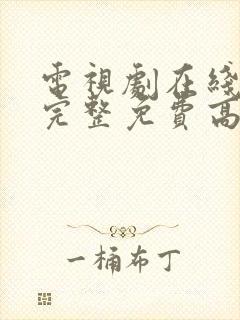 電視劇在綫
完整免費高
一桶布丁